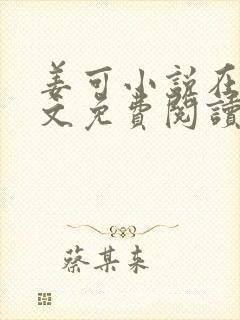 姜可小说在
文免費閱讀
蔡某来